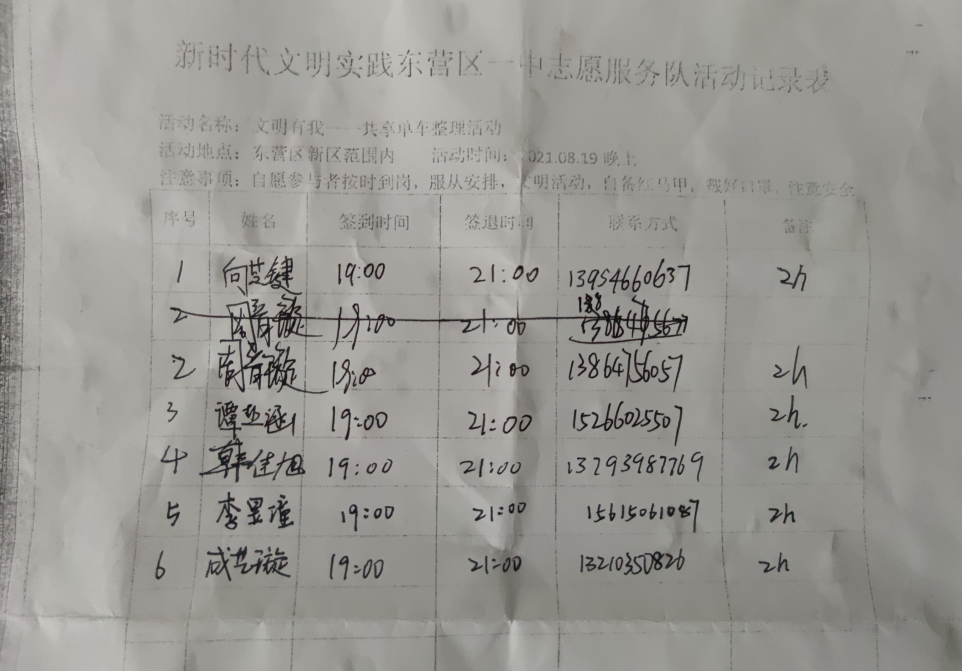 新时代文明实践东营区一中志愿服务队活动记录表
活动名称：文明有我——共享单车整理活动
活动地点：东营区新区范围内 活动时间：2021.08.19 晚上
注意事项：自愿参与者按时到岗，服从安排，文明活动，自备红马甲，戴好口罩，注意安全
序号 姓名 签到时间 签退时间 联系方式 备注
1 向艺键 19:00 21:00 13954660637 2h
2 19:00 21:00
2 19:00 21:00 13864756057 2h
3 19:00 21:00 15266025507 2h.
4 韩佳旭 19:00 21:00 13793987769 2h
5 李昱瑾 19:00 21:00 15615061087 2h
6 成艺璇 19:00 21:00 13210350826 2h